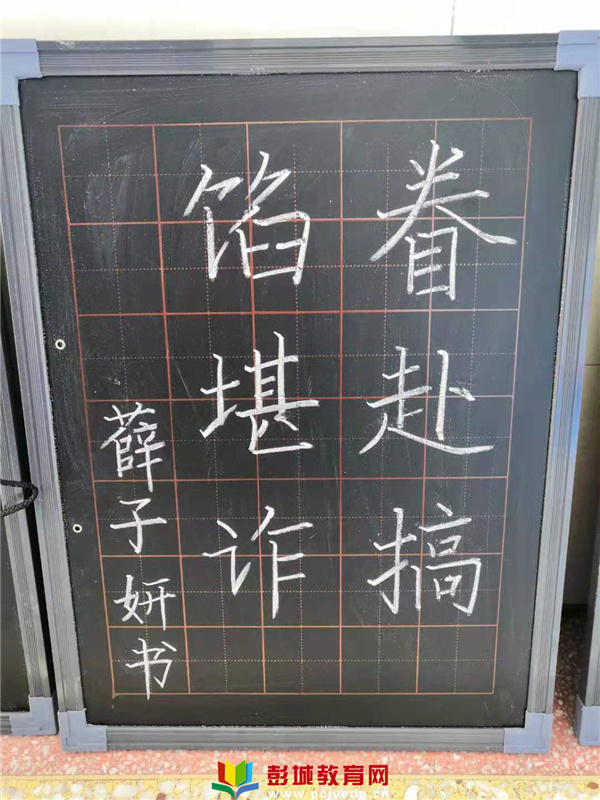 眷赴搞
馅堪诈
薛子妍书
彭城教育网
www.pcjyedu.cn